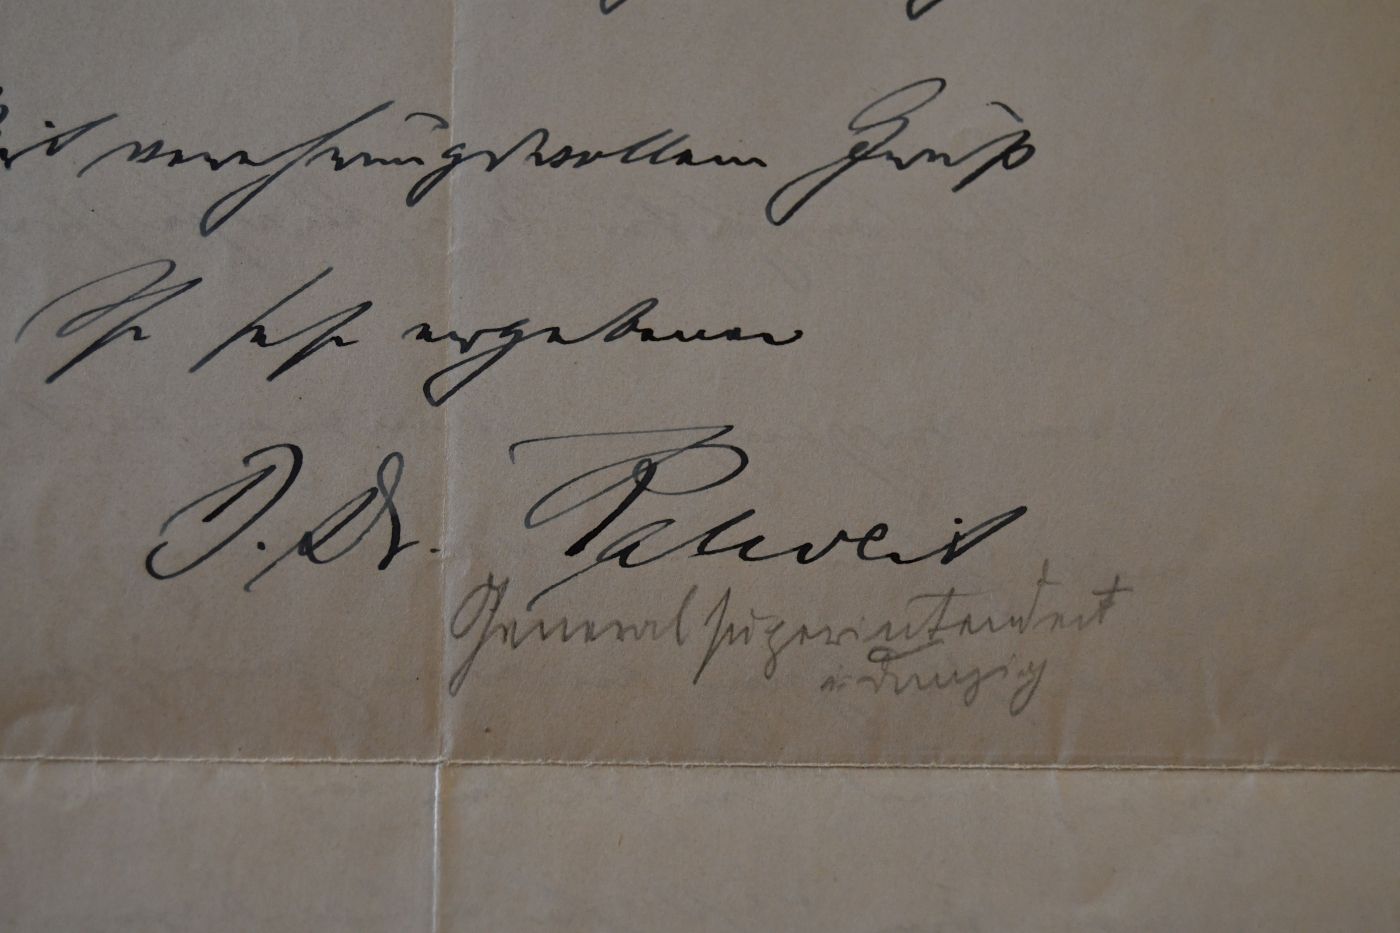 Mit verehrungsvollem Gruß
Ihr sehr ergebener
D. Dr. Kalweit
Generalsuperintendent
in Danzig